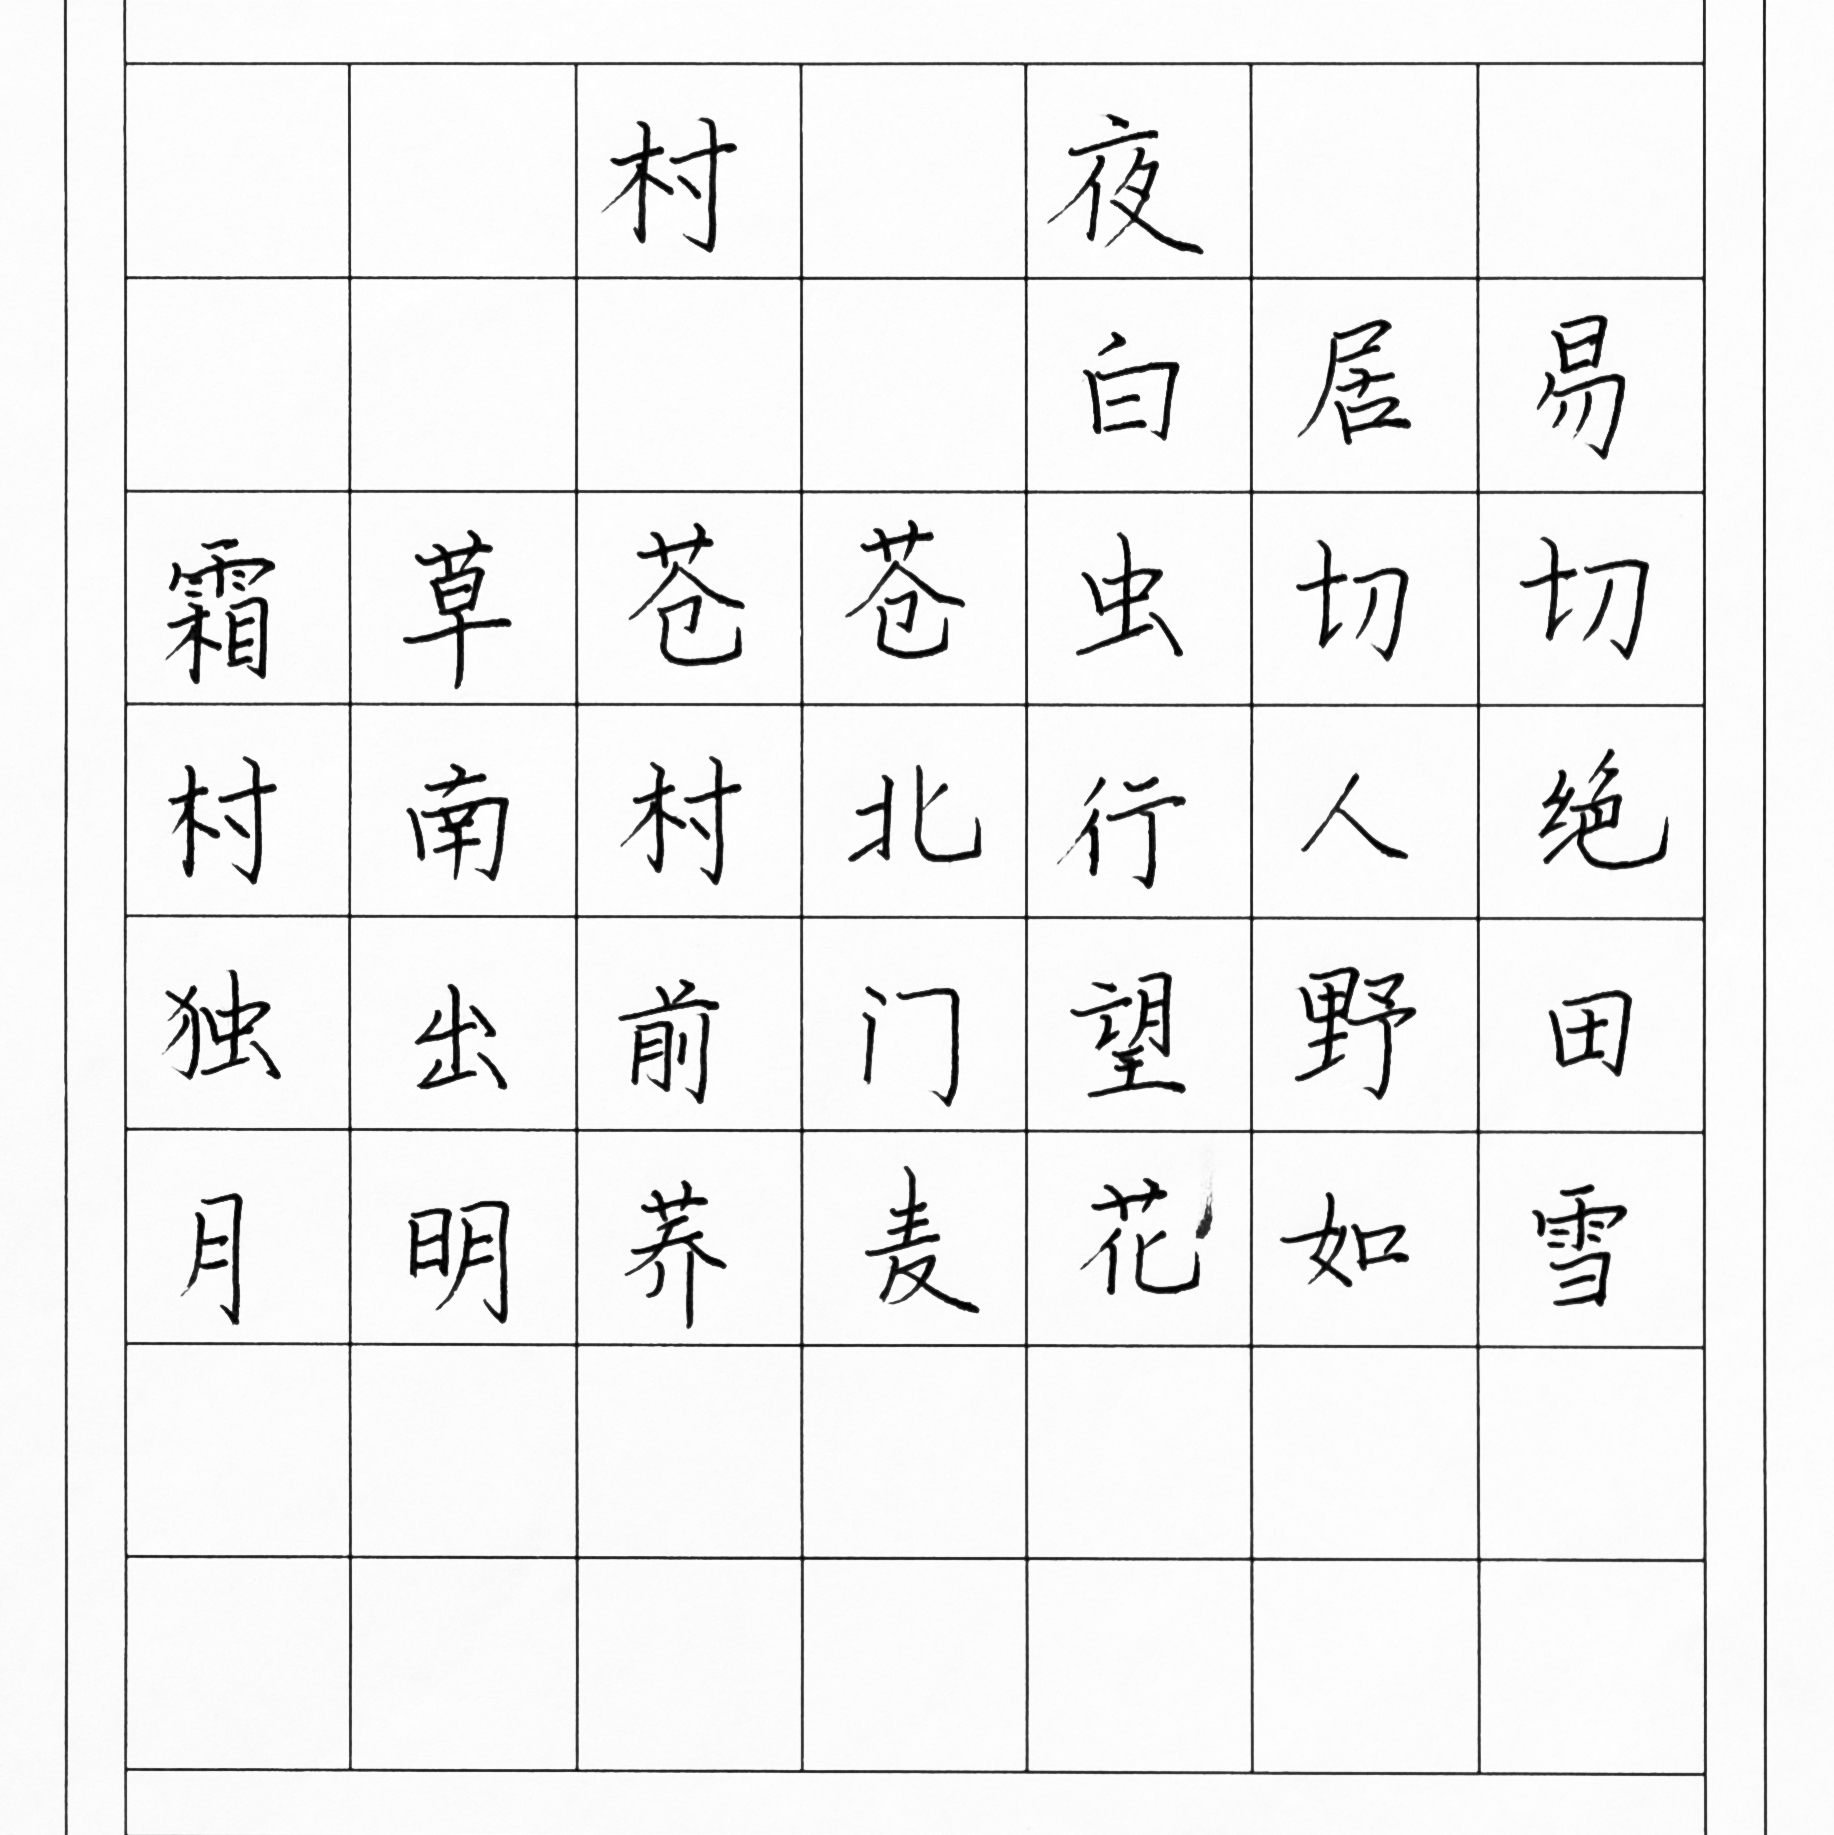 村 夜
白居易
霜草苍苍虫切切
村南村北行人绝
独出前门望野田
月明荞麦花如雪